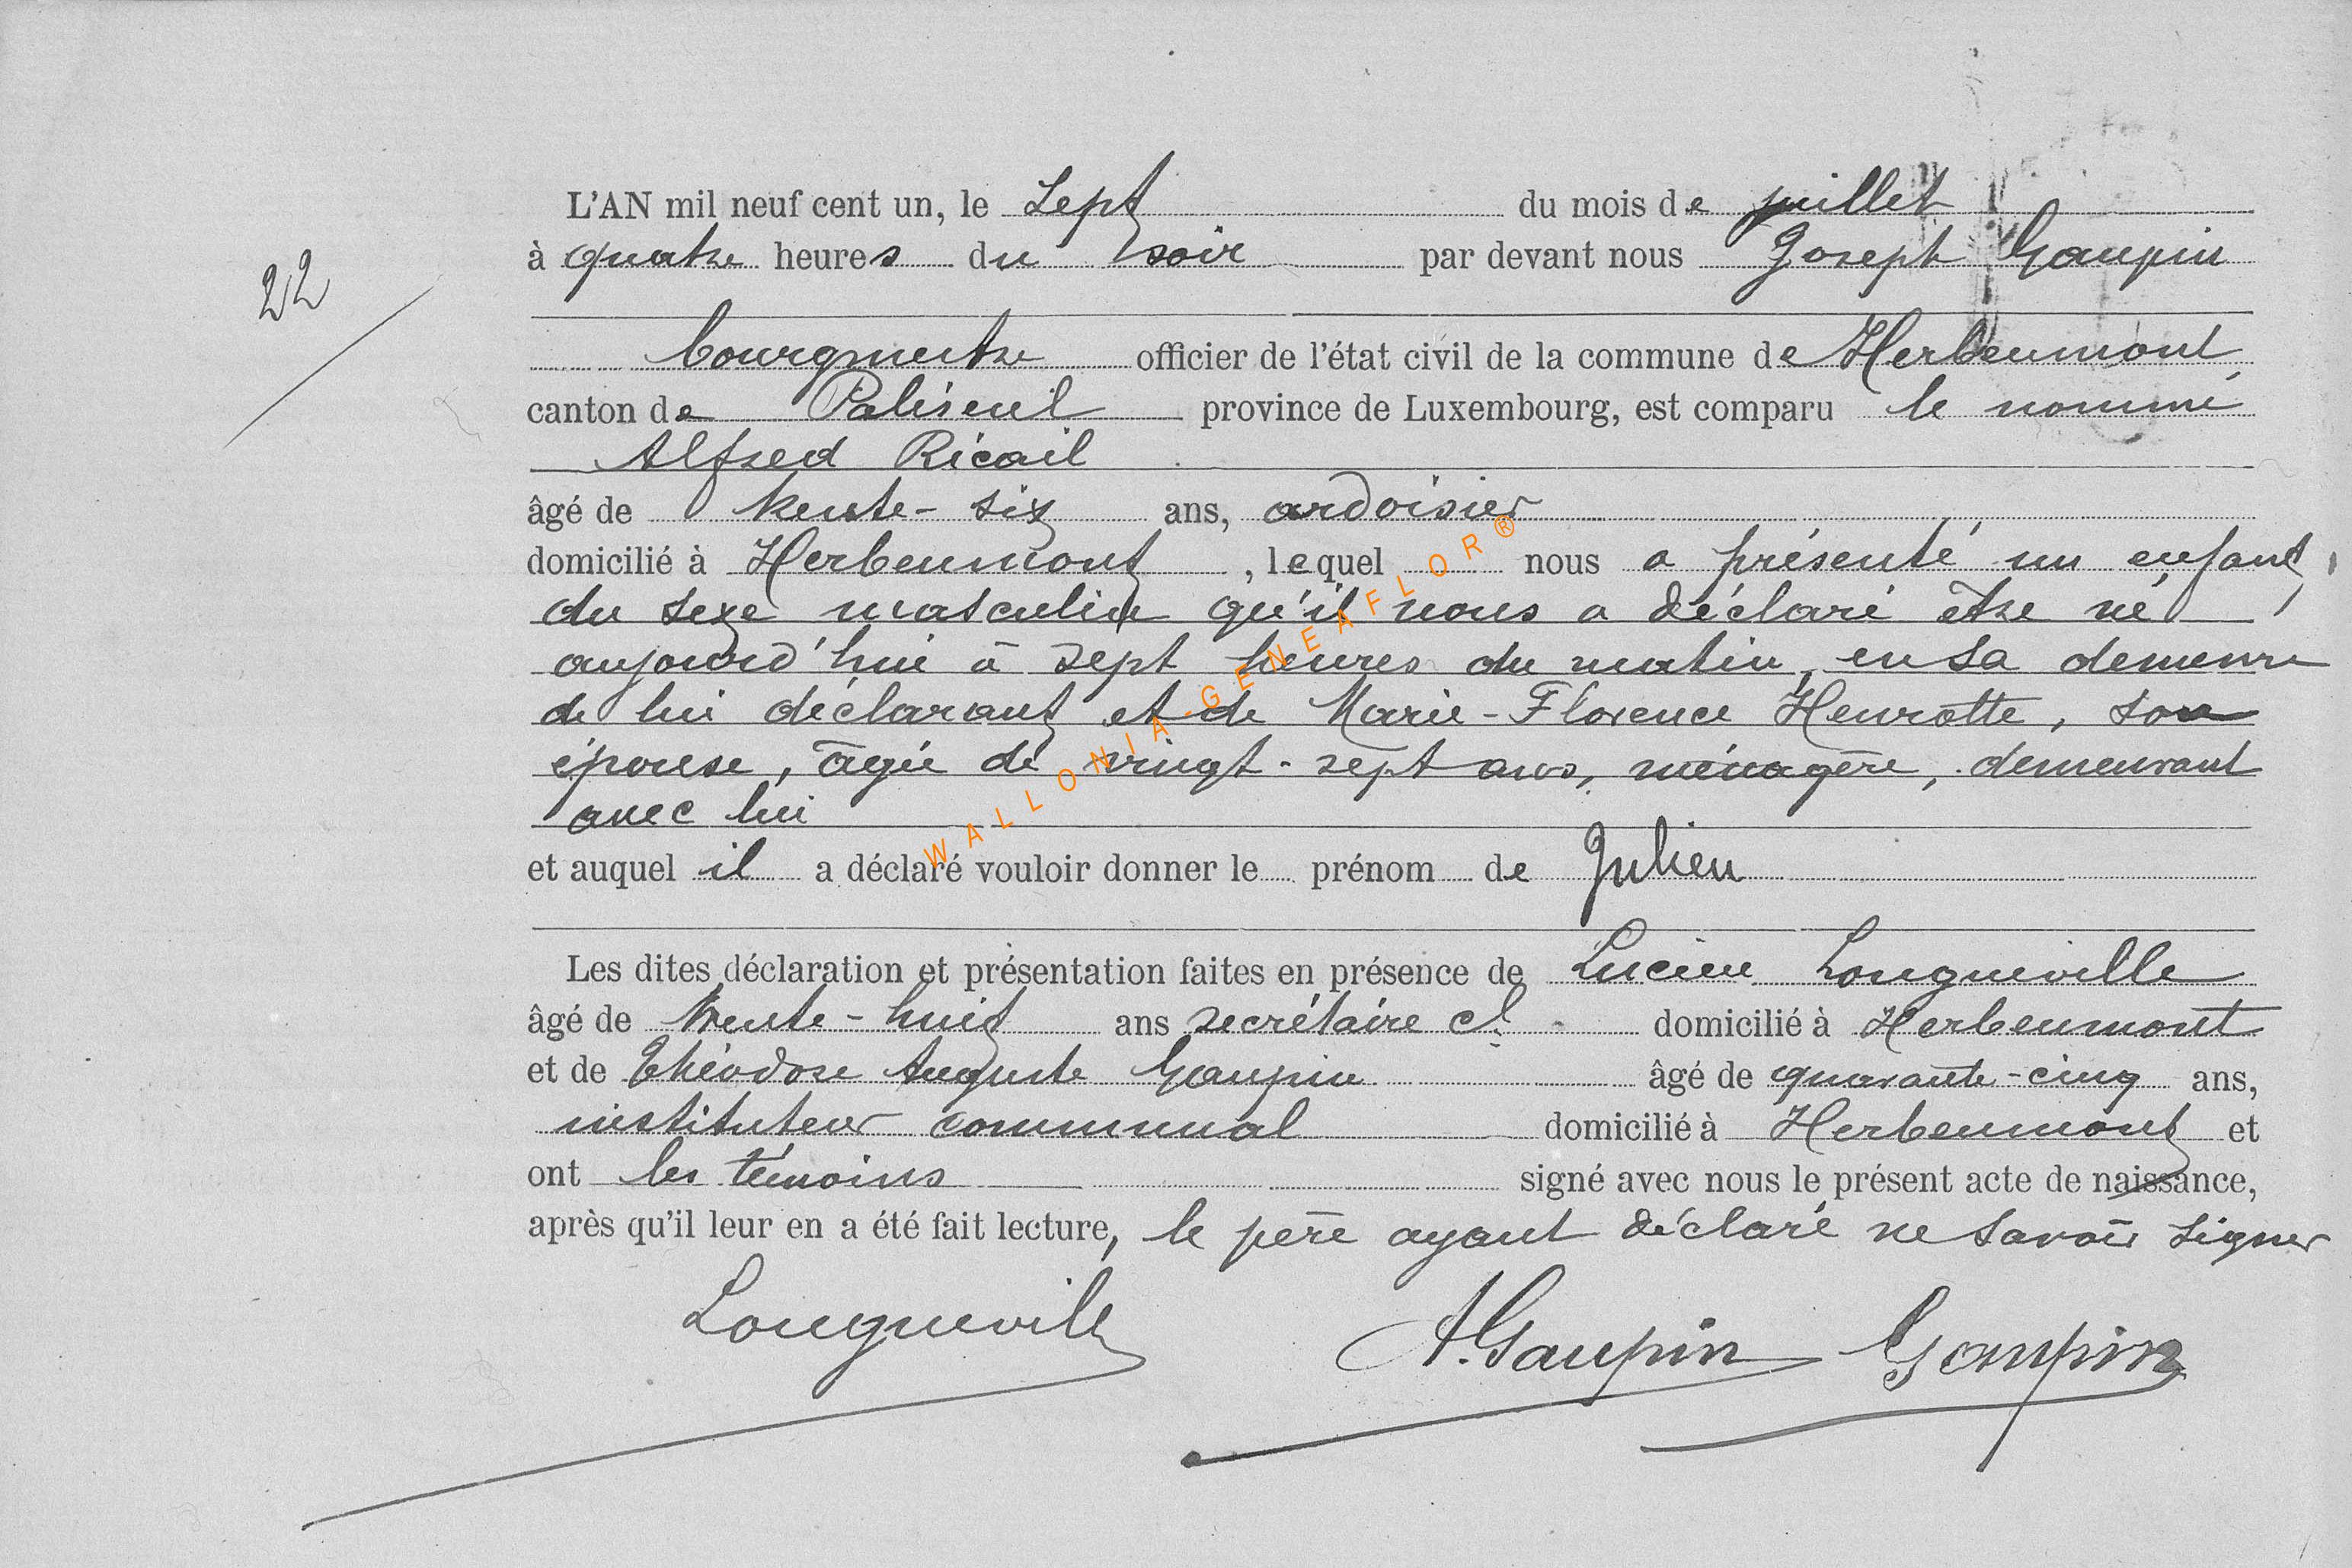 L'AN mil neuf cent un, le sept du mois de juillet
à quatre heures du soir par devant nous Joseph Gaupin
22
bourgmestre officier de l'état civil de la commune de Herbeumont
canton de Paliseul province de Luxembourg, est comparu le nommé
Alfred Ricail
âgé de trente-six ans, ardoisier
domicilié à Herbeumont, lequel nous a présenté un enfant
du sexe masculin qu'il nous a déclaré être né
aujourd'hui à sept heures du matin, en sa demeure
de lui déclarant et de Marie-Florence Henrotte, son
épouse, âgée de vingt-sept ans, ménagère, demeurant
avec lui
et auquel il a déclaré vouloir donner le prénom de Julien
Les dites déclaration et présentation faites en présence de Lucien Longueville
âgé de trente-huit ans secrétaire cl domicilié à Herbeumont
et de Théodore Auguste Gaupin âgé de quarante-cinq ans,
instituteur communal domicilié à Herbeumont et
ont les témoins signé avec nous le présent acte de naissance,
après qu'il leur en a été fait lecture, le père ayant déclaré ne savoir signer
Longueville A. Gaupin Gaupin
WALLONIA-GENEAFLOR®